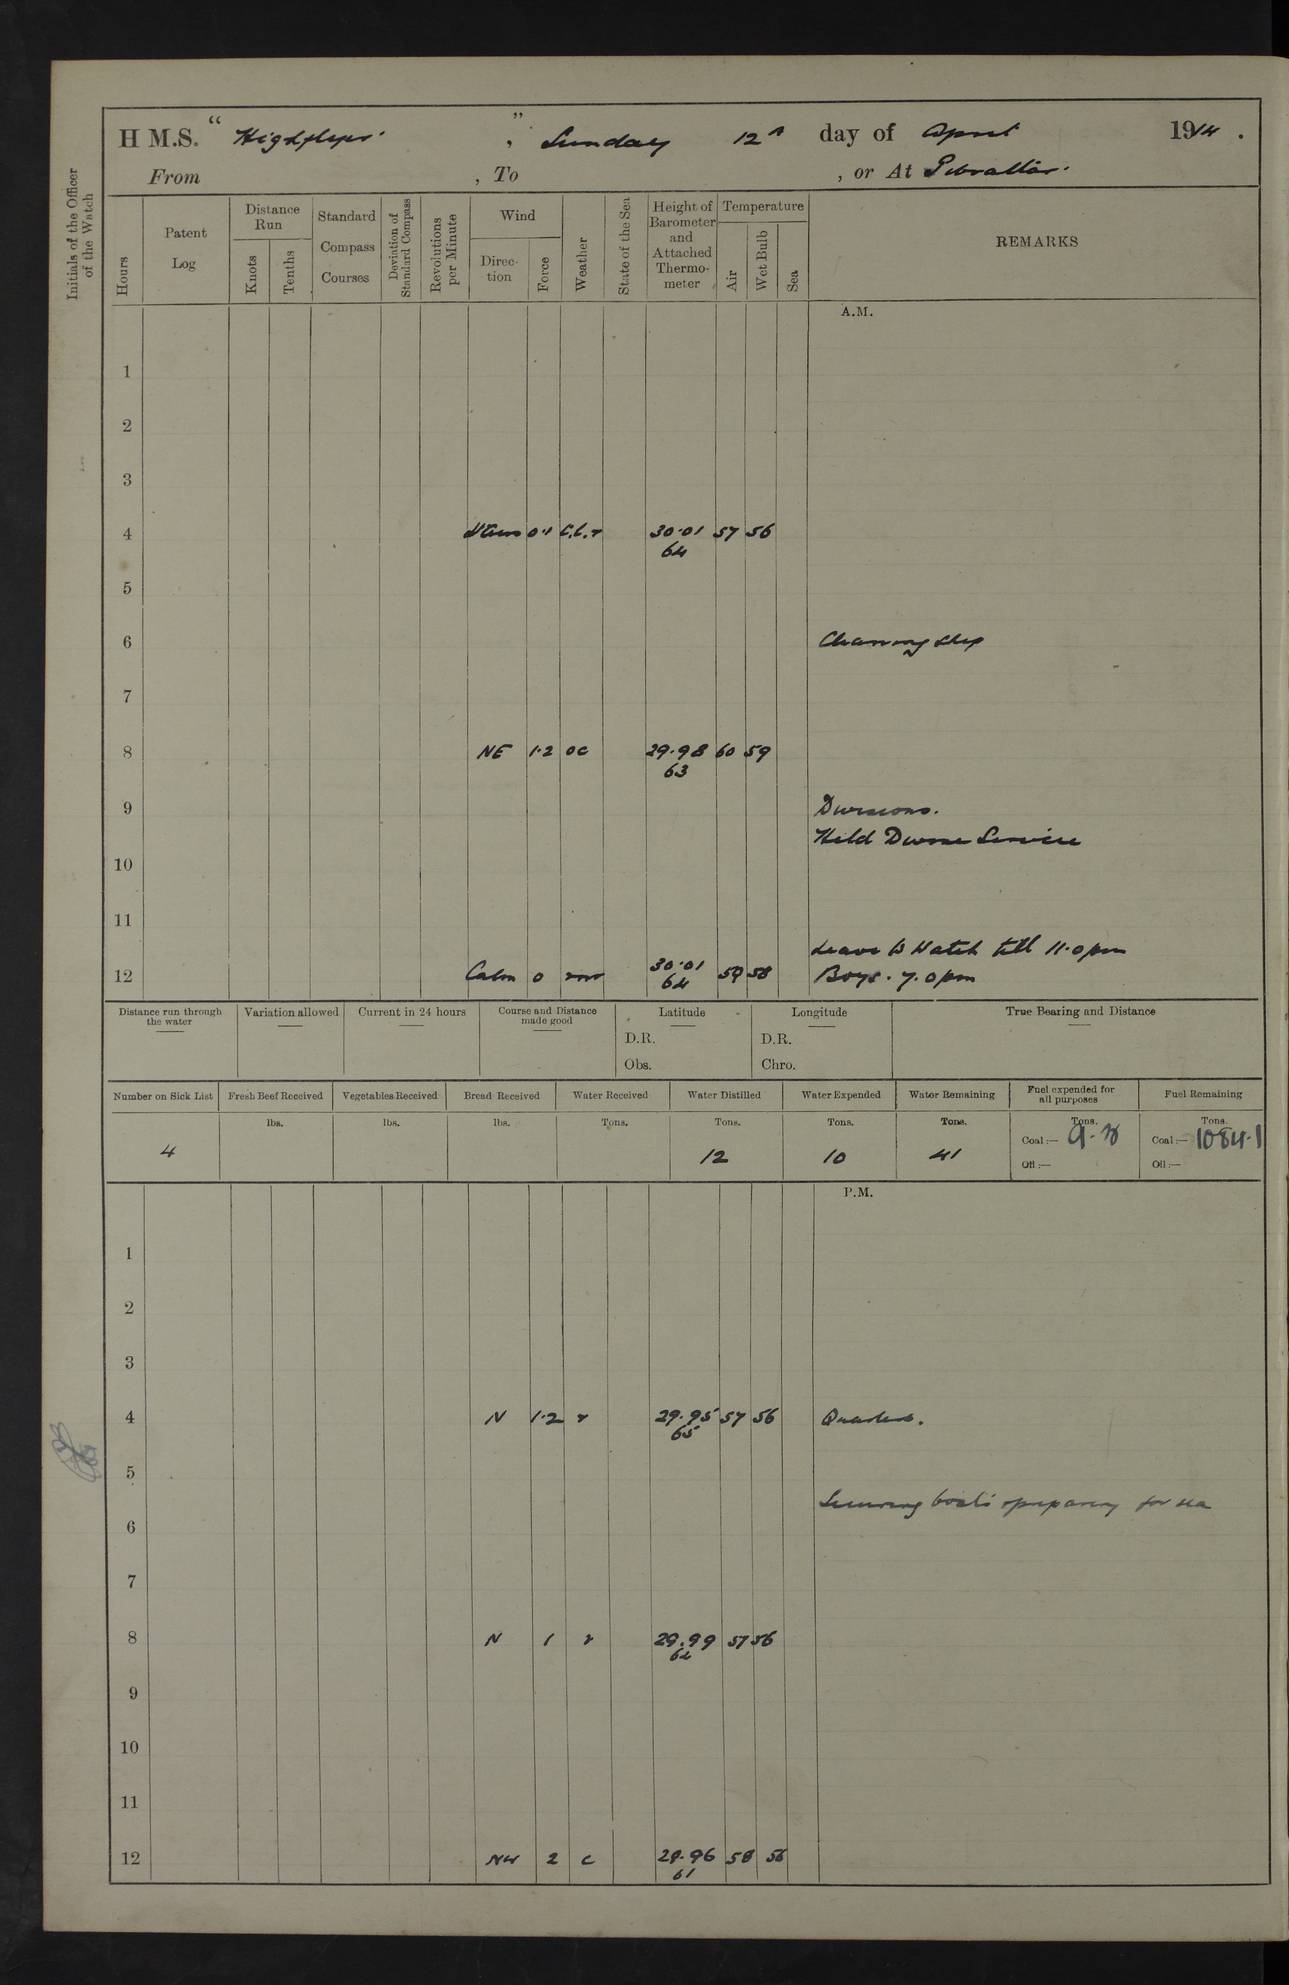 H.M.S. "Highflyer", Sunday 12th day of April 1914.
From , To , or At Gibraltar.
Initials of the Officer of the Watch
Hours
Patent Log
Distance Run
Knots
Tenths
Standard Compass Courses
Deviation of Standard Compass
Revolutions per Minute
Wind
Direction
Force
Weather
State of the Sea
Height of Barometer and Attached Thermometer
Temperature
Air
Wet Bulb
Sea
REMARKS
A.M.
1
2
3
4 0.1 30.01 57 56
64
5
6 Cleaning ship
7
8 NE 1.2 oc 29.98 60 59
63
9 Divisions.
Held Divine Service
10
11
Leave to Watch till 11.0 pm
12 Calm 0 30.01 59 58 Boys. 7.0 pm
64
Distance run through the water
Variation allowed
Current in 24 hours
Course and Distance made good
Latitude
D.R.
Obs.
Longitude
D.R.
Chro.
True Bearing and Distance
Number on Sick List
4
Fresh Beef Received
lbs.
Vegetables Received
lbs.
Bread Received
lbs.
Water Received
Tons.
Water Distilled
Tons.
12
Water Expended
Tons.
10
Water Remaining
Tons.
41
Fuel expended for all purposes
Tons.
Coal:— 9.8
Oil:—
Fuel Remaining
Tons.
Coal:— 1084.1
Oil:—
P.M.
1
2
3
4 N 1.2 r 29.95 57 56 Quarters.
65
5
Securing boats preparing for sea
6
7
8 N 1 r 29.99 57 56
62
9
10
11
12 NW 2 c 29.96 58 56
61